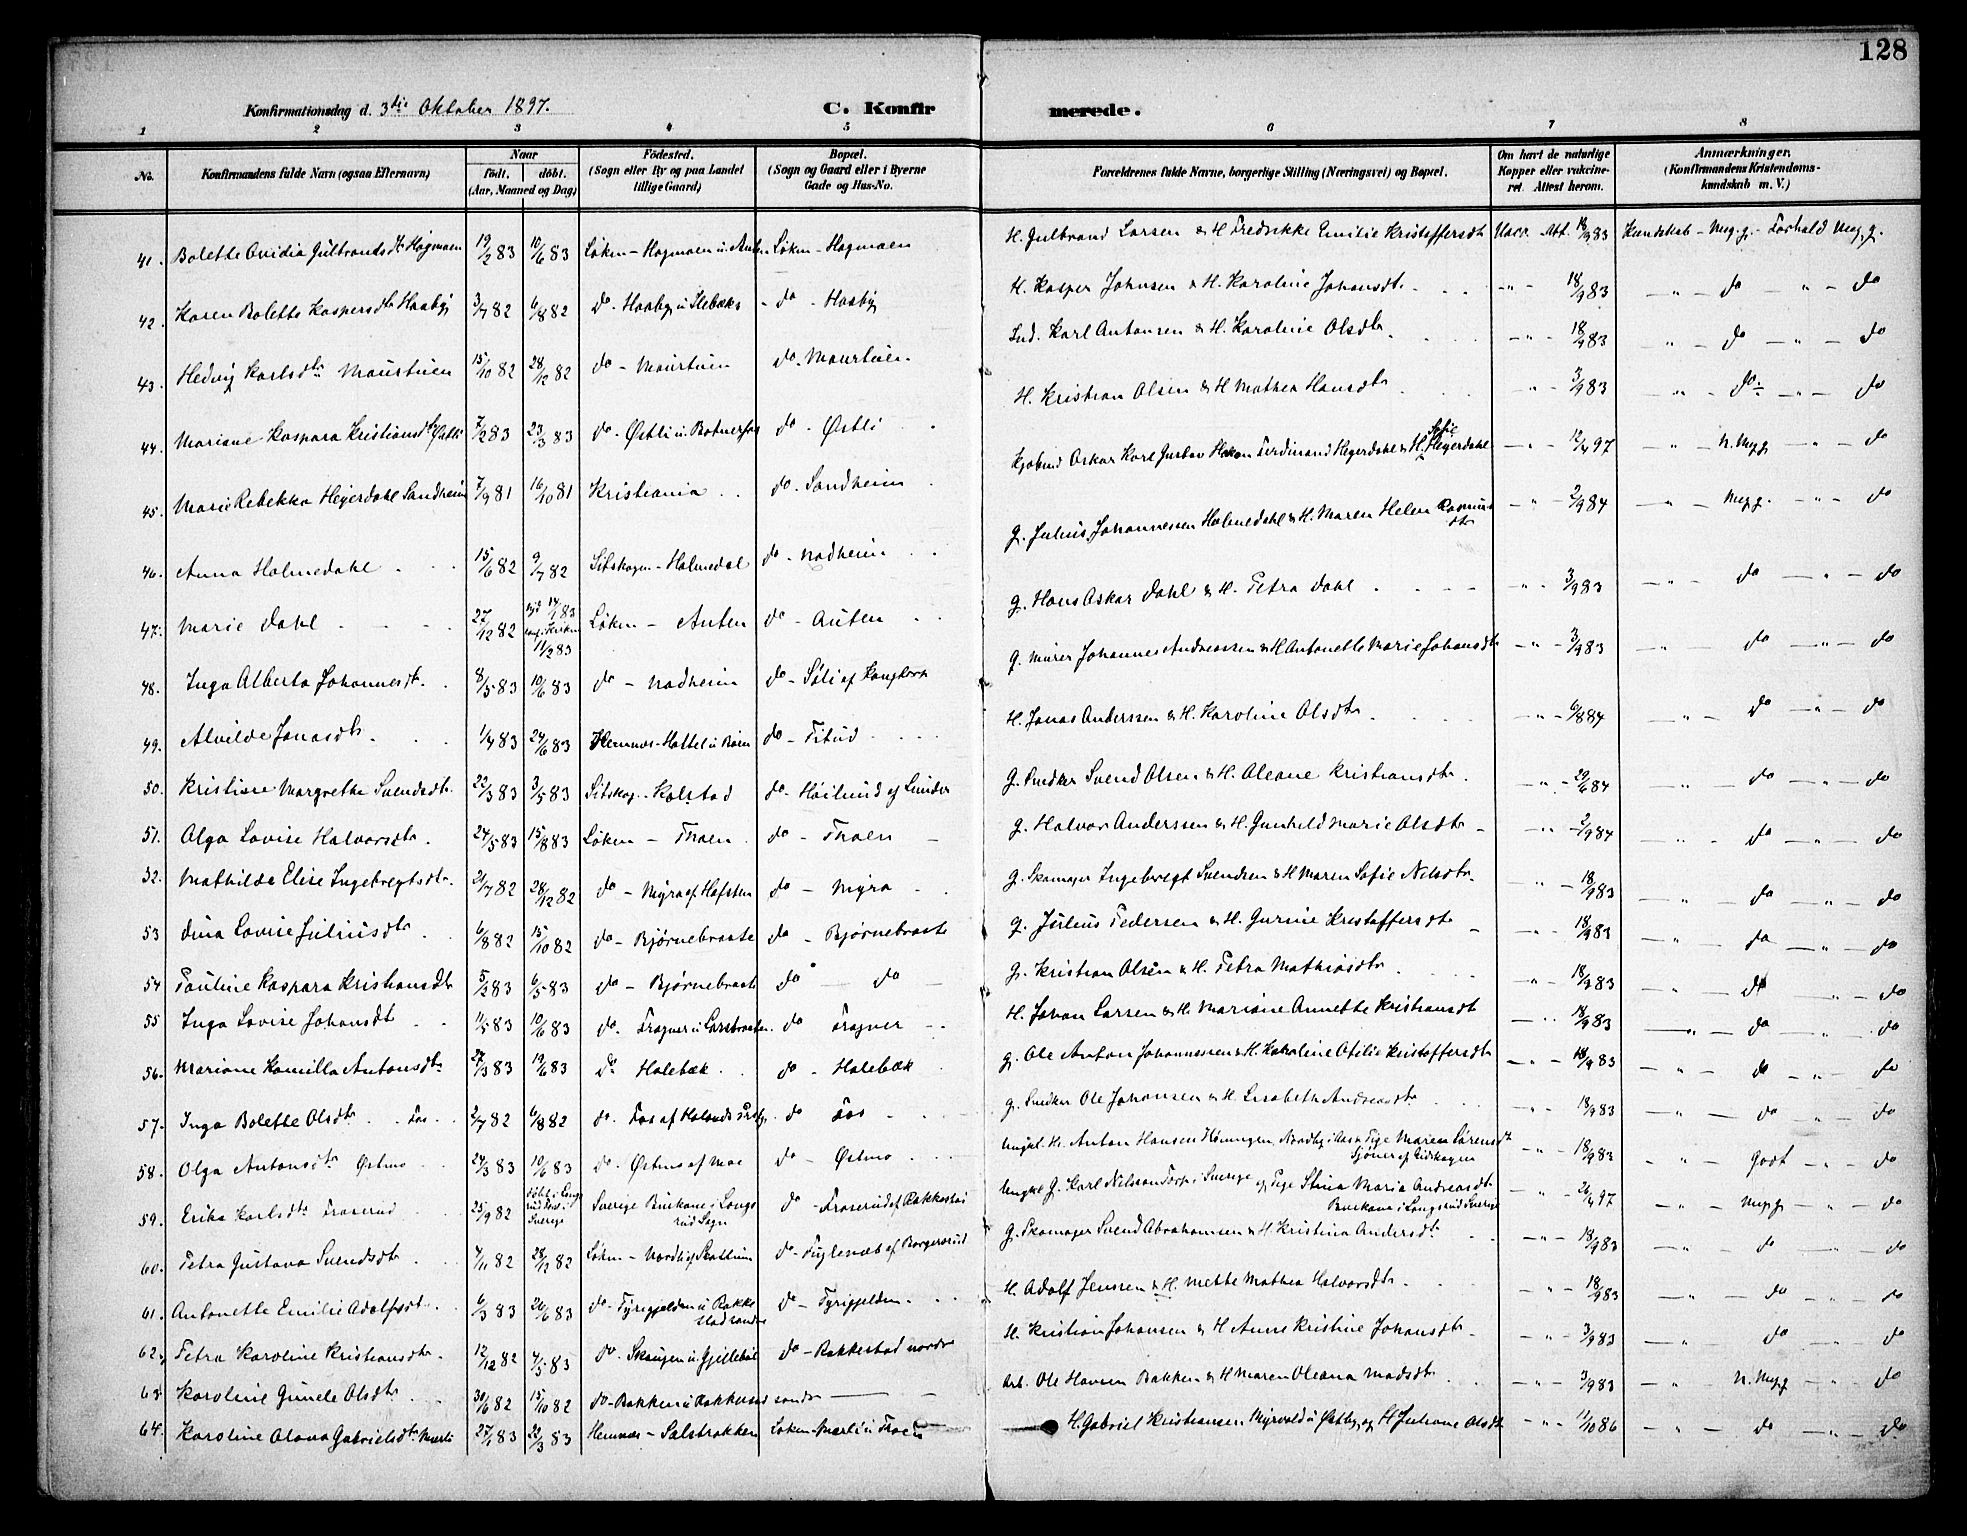 128
Konfirmationsdag d. 3die Oktober 1897. C. Konfirmerede.
1 2 3 4 5 6 7 8
No. Konfirmandens fulde Navn (ogsaa Efternavn) Naar født. døbt. (Aar, Maaned og Dag) Fødested. (Sogn eller By og paa Landet tillige Gaard) Bopæl. (Sogn og Gaard eller i Byerne Gade og Hus-No. Forældrenes fulde Navne, borgerlige Stilling (Næringsvei) og Bopæl. Om havt de naturlige Kopper eller vakcineret. Attest herom. Anmærkninger. (Konfirmandens Kristendomskundskab m. V.)
41. Bolette Ovidia Gulbrandsdtr Hogmoen 19/2 83 10/6 83 Løken - Hogmoen u. Løken - Hogmoen H. Gulbrand Larsen & H Fredrikke Emilie Kristoffersdtr Vacc. Att. 83 Kundskab - Meg. g. - Forhold Meg. g.
42. Karen Bolette Kaspersdtr Haaby 3/7 82 6/8 82 do - Haaby u Ilebæks - do - Haaby H. Kasper Johnsen & H. Karoline Johansdtr - " - 18/9 83 - " - do - " - do
43. Hedvig Karlsdtr Maurtuen 15/10 82 28/12 82 do - Maurtuen do - Maurtuen Ind. Karl Antonsen & H. Karoline Olsdtr. - " - 18/9 83 - " - do - " - do
44. Mariane Kaspara Kristiansdtr Østli 7/2 83 23/3 83 do - Østli u. Botnerfos do - Østli H. Kristian Olsen & H Mathea Hansdtr - " - 3/9 83 - " - do - " - do
45. Marie Rebekka Heyerdahl Sandheim 7/9 81 16/10 81 Kristiania do - Sandheim Kjøbmd Oskar Karl Gustav Hakon Ferdinand Heyerdahl & H. Sofie Heyerdahl - " - 12/4 97 - " - N. Megg - " - do
46. Anna Holmedahl 15/6 82 9/7 82 Sitskogen - Holmedal do - Nadheim g. Julius Johannessen Holmedahl & H. Maren Helene Rasmusdtr - " - 2/9 84 - " - Megg. - " - do
47. Marie Dahl 27/12 82 hjd 14/1 83 11/2 83 Løken - Auten do - Auten g. Hans Oskar Dahl & H. Petra Dahl - " - 3/9 83 - " - do - " - do
48. Inga Alberta Johannesdtr. 8/5 83 10/6 83 do - Nadheim do - Søli af g. Murer Johannes Andreassen & H Antonette Marie Johansdtr - " - 3/9 83 - " - do - " - do
49. Alvilde Jonasdtr. 1/4 83 24/6 83 Hemnes - Hattel u do - Titud H. Jonas Anderssen & H. Karoline Olsdtr - " - 6/8 84 - " - do - " - do
50. Kristine Margrethe Svendsdtr. 22/3 83 3/5 83 Sitskog. - Kolstad do - Høilund af Lunder g. Snedker Svend Olsen & H. Oleane Kristiansdtr. - " - 29/6 84 - " - do - " - do
51. Olga Lovise Halvorsdtr. 24/5 83 15/8 83 Løken - Thoen do - Thoen g. Halvor Anderssen & H. Gunhild Marie Olsdtr - " - 2/9 84 - " - do - " - do
52. Mathilde Elise Ingebregtsdtr. 21/7 82 28/12 82 do - Myra af Hofsten do - Myra g. Skomager Ingebregt Svendsen & H Maren Sofie Nilsdtr. - " - 18/9 83 - " - do - " - do
53 Dina Lovise Juliusdtr 6/8 82 15/10 82 do - Bjørnebraate do - Bjørnebraate g. Julius Pedersen & H. Gurine Kristoffersdtr - " - 18/9 83 - " - do - " - do
54 Pauline Kaspara Kristiansdtr 5/2 83 6/5 83 do - Bjørnebraate do - do g. Kristian Olsen & H. Petra Mathiasdtr - " - 18/9 83 - " - do - " - do
55 Inga Lovise Johansdtr 11/5 83 10/6 83 do. Frogner u Larsbraaten do Frogner H. Johan Larsen & H. Mariane Annette Kristiansdtr - " - 18/9 83 - " - do - " - do
56. Mariane Kamilla Antonsdtr 27/3 83 19/6 83 do Holebæk do - Holebæk g. Ole Anton Johannessen & H. Karoline Otilie Kristoffersdtr - " - 18/9 83 - " - do - " - do
57. Inga Bolette Olsdtr. Fos 2/7 82 6/8 82 do. Fos af Holands do Fos g. Snedker Ole Johansen & H. Lisabeth Andreasdtr - " - 18/9 83 - " - do - " - do
58. Olga Antonsdtr Østmo 24/3 83 10/6 83 do. Østmo af Moe do - Østmo Ungkl. H. Anton Hansen Nordby i og Pige Maren Sørensdtr - " - 18/9 83 - " - Godt - " - do
59. Erika Karlsdtr Froserud 25/9 82 døbt i Sverige Sverige i Longsrud Sogn do - Froserud af Rakkestad Ungkl g. Karl Nilsson Torp i Sverige og Pige Stina Maria Andreasdtr i Longsrud Sverige - " - 26/4 97 - " - Megg - " - do
60. Petra Gustava Svendsdtr 4/11 82 28/12 82 Løken - Nordli af do - Fuglenæb af Borgerud g. Skomager Svend Abrahamsen & H Kristina Andersdtr - " - 18/9 83 - " - do - " - do
61. Antonette Emilie Adolfsdtr. 6/3 83 26/6 83 do - Fyrigjelden u Rakkestad søndre do - Fyrigjelden. H. Adolf Jenssen & H. Mette Mathea Halvorsdtr. - " - 18/9 83 - " - do - " - do
62. Petra Karoline Kristiansdtr. 12/12 82 4/3 83 do. Skaugen u Gjillebøl do - Rakkestad nordre H. Kristian Johansen & H Anne Kristine Johansdtr - " - 3/9 83 - " - do - " - do
63. Karoline Gunele Olsdtr 30/6 82 15/10 82 do - Bakken u Rakkestad søndr Arb. Ole Hansen Bakken & H Maren Oleana Madsdtr - " - 3/9 83 - " - N. Megg - " - do
64. Karoline Olava Gabrielsdtr Mørli 27/1 83 22/3 83 Hemnæs - Løken - Mørli u H. Gabriel Kristiansen Myrvold u Østby og H Juliane Olsdtr - " - 11/10 86 - " - do - " - do